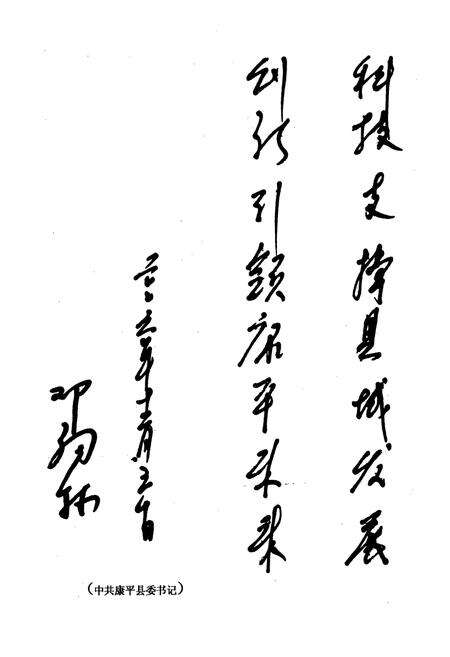 科技支撑县域发展
创新引领康平未来
二〇〇六年十二月五日
邓
（中共康平县委书记）